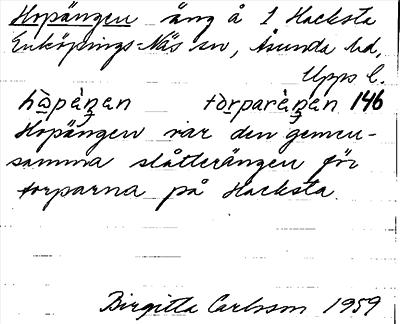 Hopängen äng å 1 Hacksta
Enköpings-Näs sn, Åsunda hd,
Upps l.
hɷ̀pèŋen tɷrparèŋen 146
Hopängen var den gemen-
samma slåtterängen för
torparna på Hacksta.
Birgitta Carlsson 1959